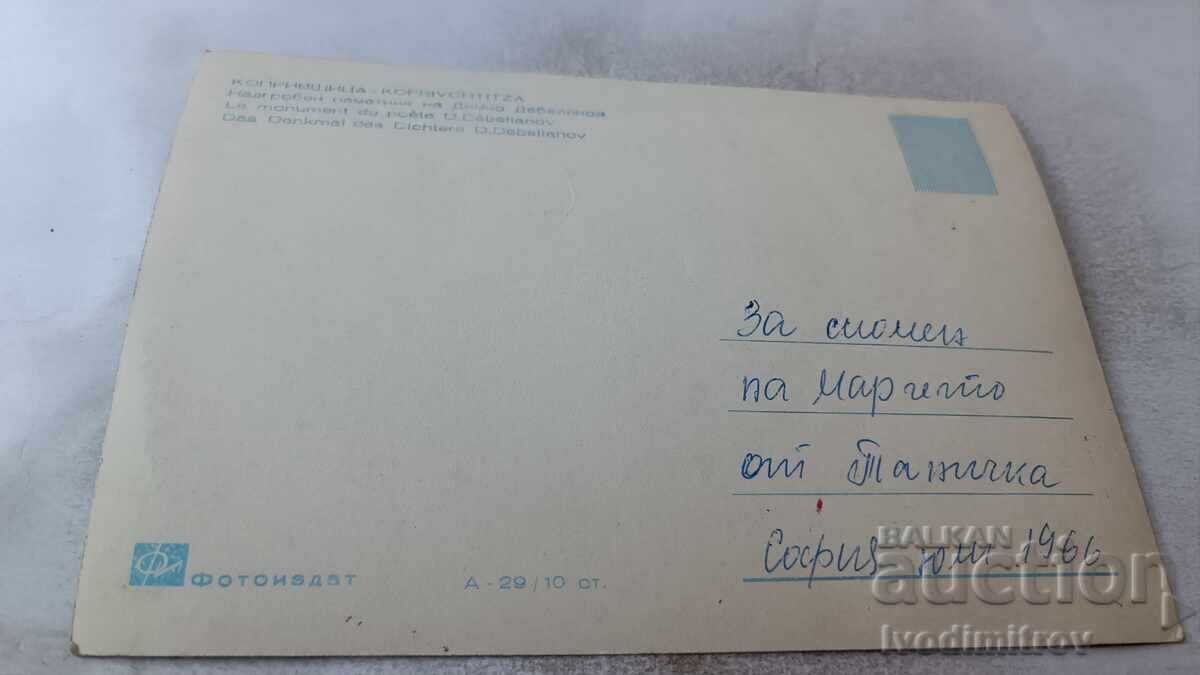 КОПРИВЩИЦА - KOPRIVCHTITZA
Надгробен паметник на Димчо Дебелянов
Le monument du poète D.Débélianov
Das Denkmal des Dichters D.Debelianov
За спомен
на Маргето
от Таничка
София юли 1966
ФОТОИЗДАТ
А - 29/10 ст.
BALKAN
auction
Ivodimitrov